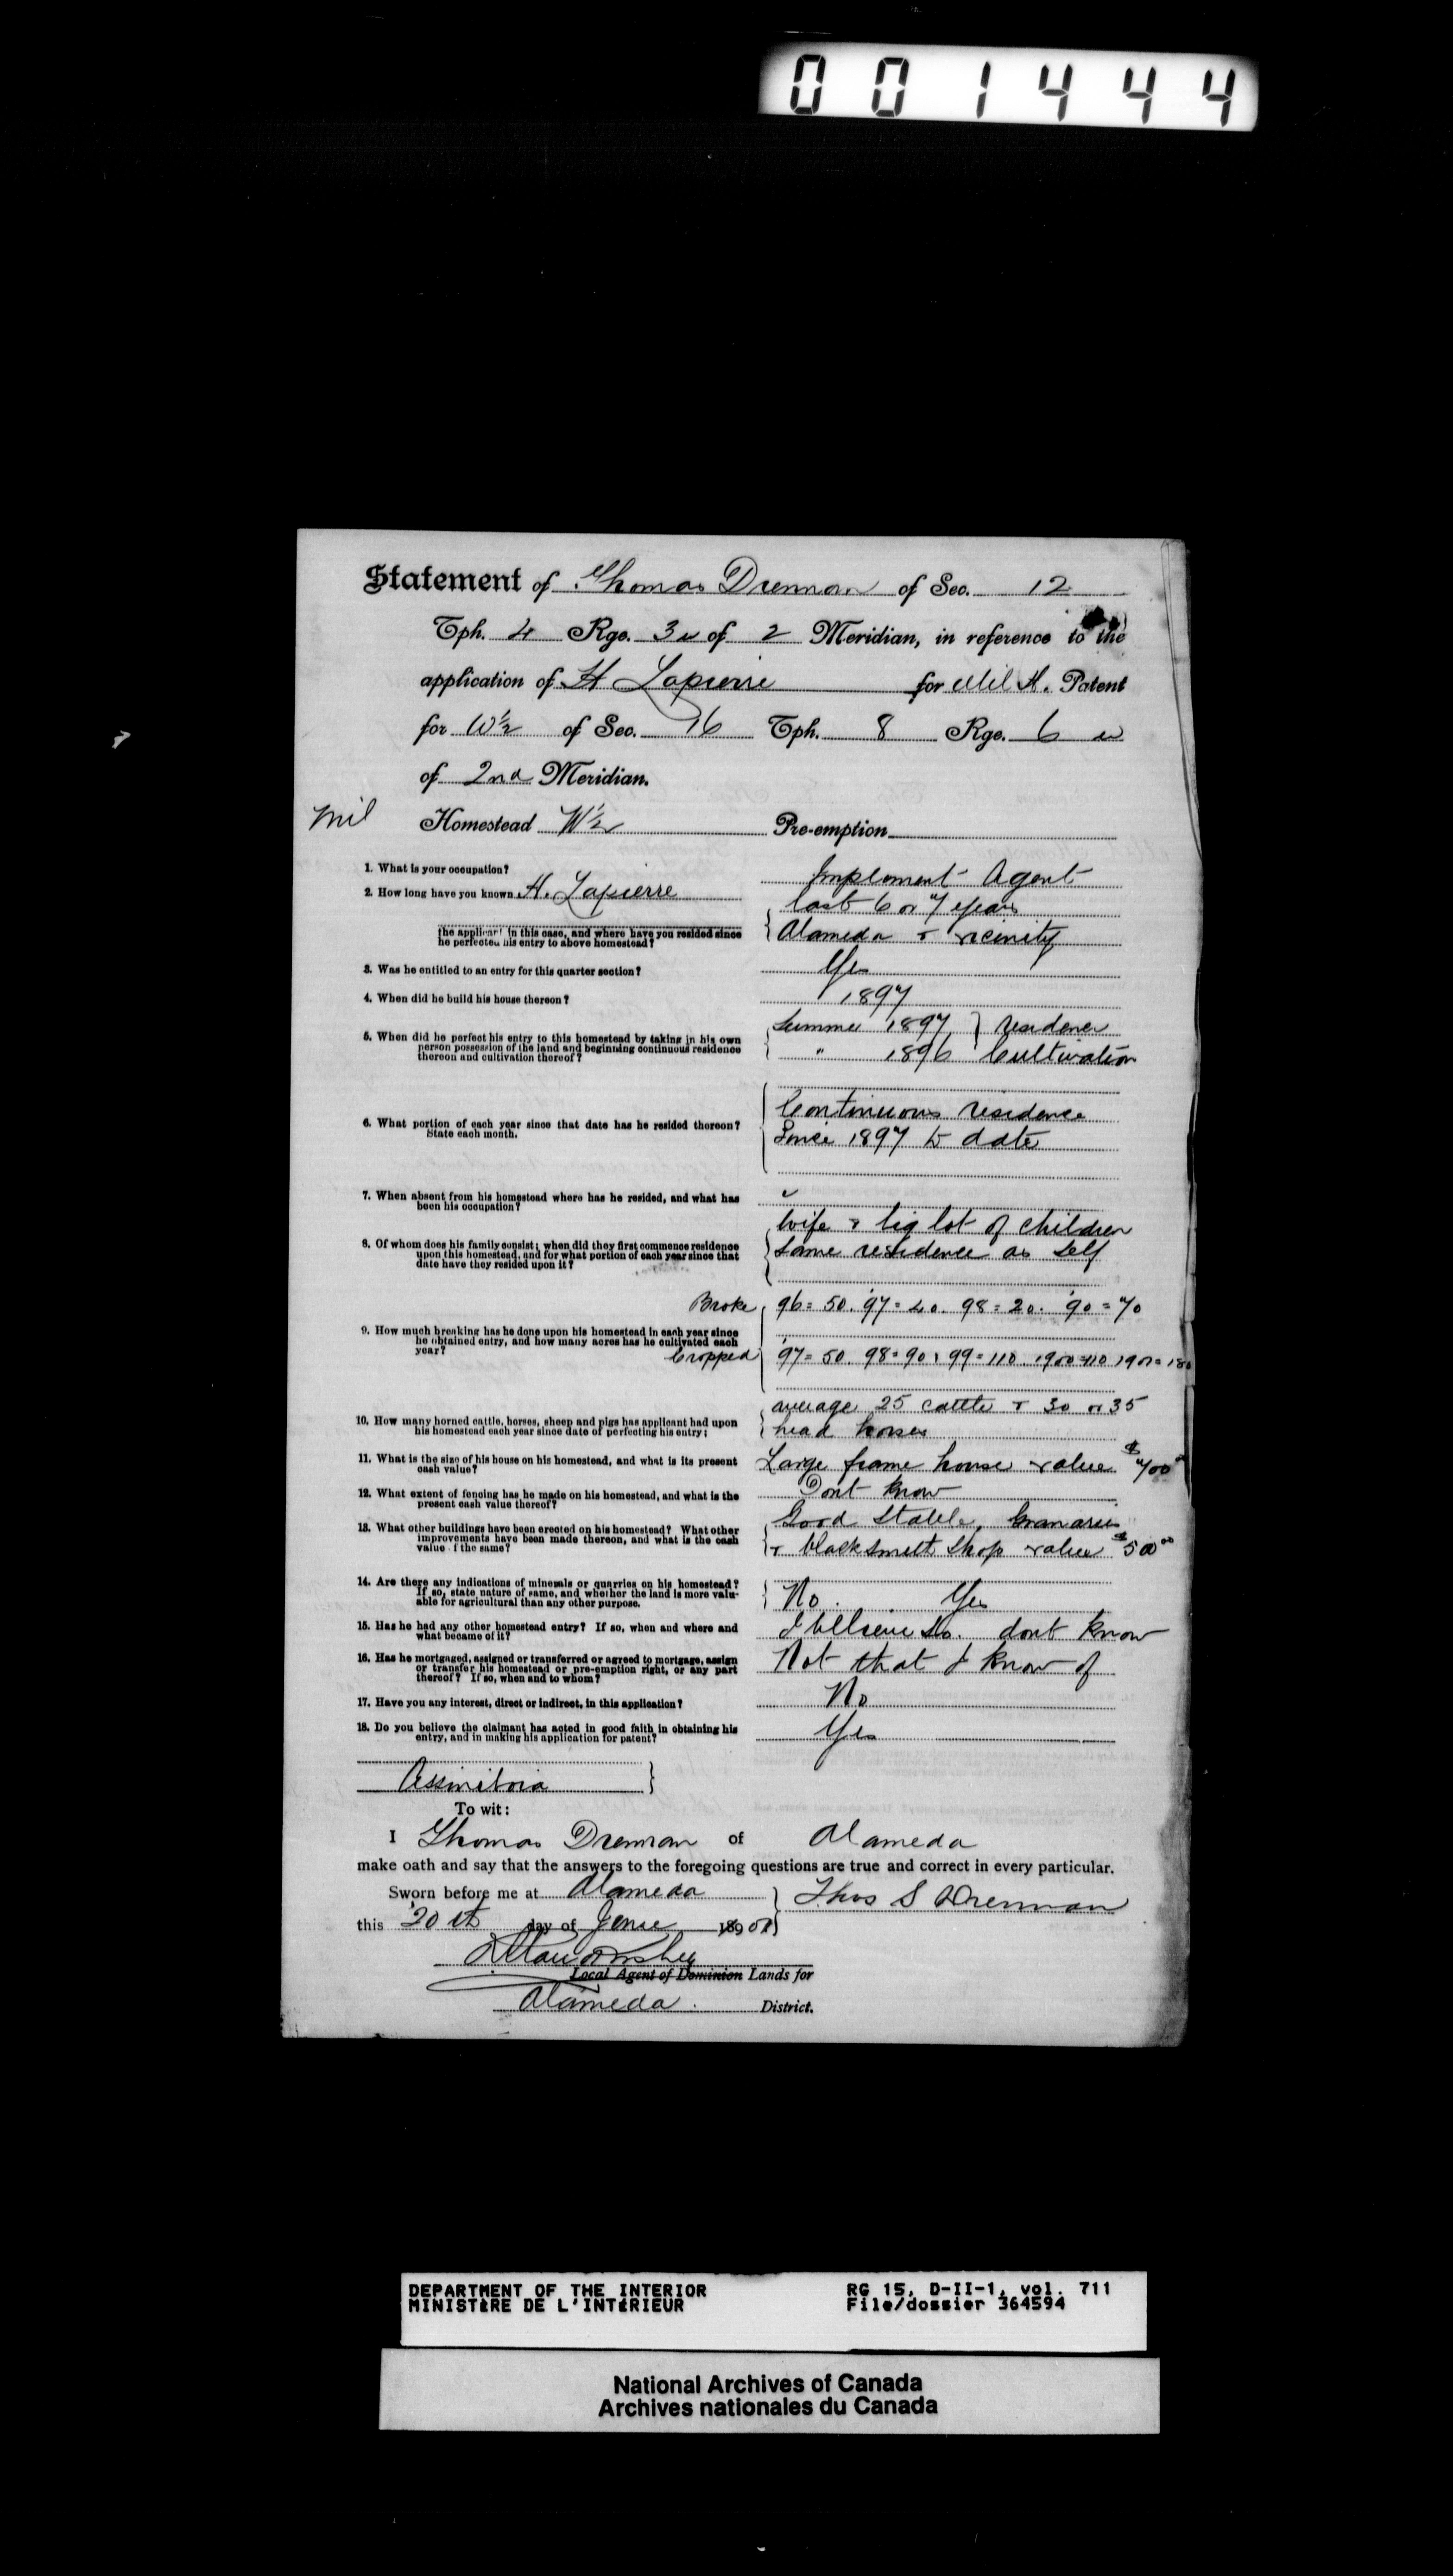 001444
Statement of Thomas Drennan of Sec. 12
Tph. 4 Rge. 3 w of 2 Meridian, in reference to the
application of H Lapierre for Mil H. Patent
for W½ of Sec. 16 Tph. 8 Rge. 6 w
of 2nd Meridian.
Mil Homestead W½ Pre-emption
1. What is your occupation? Implement Agent
2. How long have you known H. Lapierre last 6 or 7 years
the applicant in this case, and where have you resided since he perfected his entry to above homestead? Alameda & vicinity
3. Was he entitled to an entry for this quarter section? Yes
4. When did he build his house thereon? 1897
5. When did he perfect his entry to this homestead by taking in his own Summer 1897 } residence
person possession of the land and beginning continuous residence " 1896 Cultivation
thereon and cultivation thereof?
Continuous residence
6. What portion of each year since that date has he resided thereon? Since 1897 to date
State each month.
7. When absent from his homestead where has he resided, and what has
been his occupation?
wife & big lot of children
8. Of whom does his family consist; when did they first commence residence same residence as self
upon this homestead, and for what portion of each year since that
date have they resided upon it?
Broke 96 = 50. 97 = 40. 98 = 20. 90 = 70
9. How much breaking has he done upon his homestead in each year since
he obtained entry, and how many acres has he cultivated each
year? Cropped 97 = 50. 98 = 90, 99 = 110. 1900 = 110 1901 = 180
average 25 cattle & 30 or 35
10. How many horned cattle, horses, sheep and pigs has applicant had upon head horses
his homestead each year since date of perfecting his entry;
11. What is the size of his house on his homestead, and what is its present Large frame house value $700
cash value?
12. What extent of fencing has he made on his homestead, and what is the Dont know
present cash value thereof?
Good Stable, Granaries
13. What other buildings have been erected on his homestead? What other & blacksmith shop value $500
improvements have been made thereon, and what is the cash
value of the same?
14. Are there any indications of minerals or quarries on his homestead? No. Yes
If so, state nature of same, and whether the land is more valu-
able for agricultural than any other purpose.
15. Has he had any other homestead entry? If so, when and where and I believe so. dont know
what became of it?
16. Has he mortgaged, assigned or transferred or agreed to mortgage, assign Not that I know of
or transfer his homestead or pre-emption right, or any part
thereof? If so, when and to whom?
17. Have you any interest, direct or indirect, in this application? No
18. Do you believe the claimant has acted in good faith in obtaining his Yes
entry, and in making his application for patent?
Assiniboia
To wit:
I Thomas Drennan of Alameda
make oath and say that the answers to the foregoing questions are true and correct in every particular.
Sworn before me at Alameda } Thos S Drennan
this 20th day of June 1901
Local Agent of Dominion Lands for
Alameda. District.
DEPARTMENT OF THE INTERIOR RG 15, D-II-1, vol. 711
MINISTÈRE DE L'INTÉRIEUR File/dossier 364594
National Archives of Canada
Archives nationales du Canada